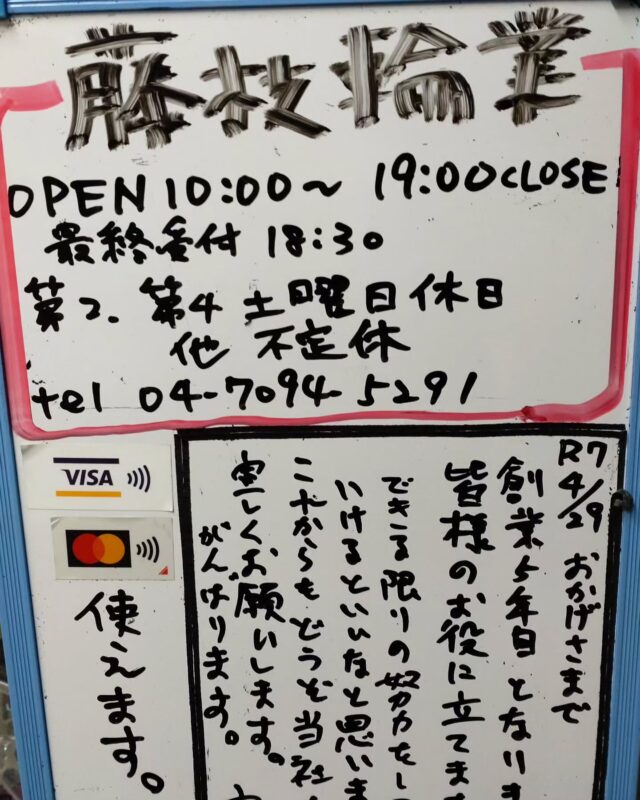 藤枝輪業
OPEN 10:00〜 19:00 CLOSE
最終受付 18:30
第2、第4 土曜日休日
他 不定休
tel 04-7094-5291
VISA
使えます。
R7 4/29 おかげさまで
創業5年目となりま
皆様のお役に立てま
できる限りの努力をし
いけるといいなと思いま
これからもどうぞ当社
宜しくお願いします。
がんばります。